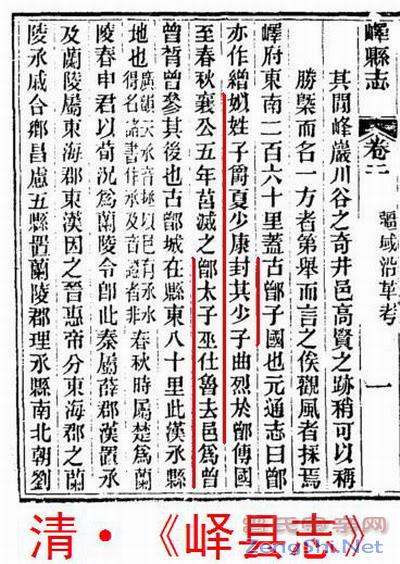 嶧縣志 卷二 疆域沿革考 一
其間峰巖川谷之奇井邑高賢之跡稍可以稱
勝槩而名一方者第舉而言之俟觀風者採焉
嶧府東南二百六十里蓋古鄫子國也元通志曰鄫
亦作繒姒姓子爵夏少康封其少子曲烈於鄫傳國
至春秋襄公五年莒滅之鄫太子巫仕魯去邑爲曾
曾晳曾參其後也古鄫城在縣東八十里此漢承縣
地也廣韻云承音拯以邑有承水得名諸書作丞及音證者非春秋時屬楚爲蘭
陵春申君以荀況爲蘭陵令卽此秦屬薛郡漢置承
及蘭陵屬東海郡東漢因之晉惠帝分東海郡之蘭
陵承戚合鄉昌慮五縣置蘭陵郡理承縣南北朝劉
清·《峄县志》
ZengShi.Net